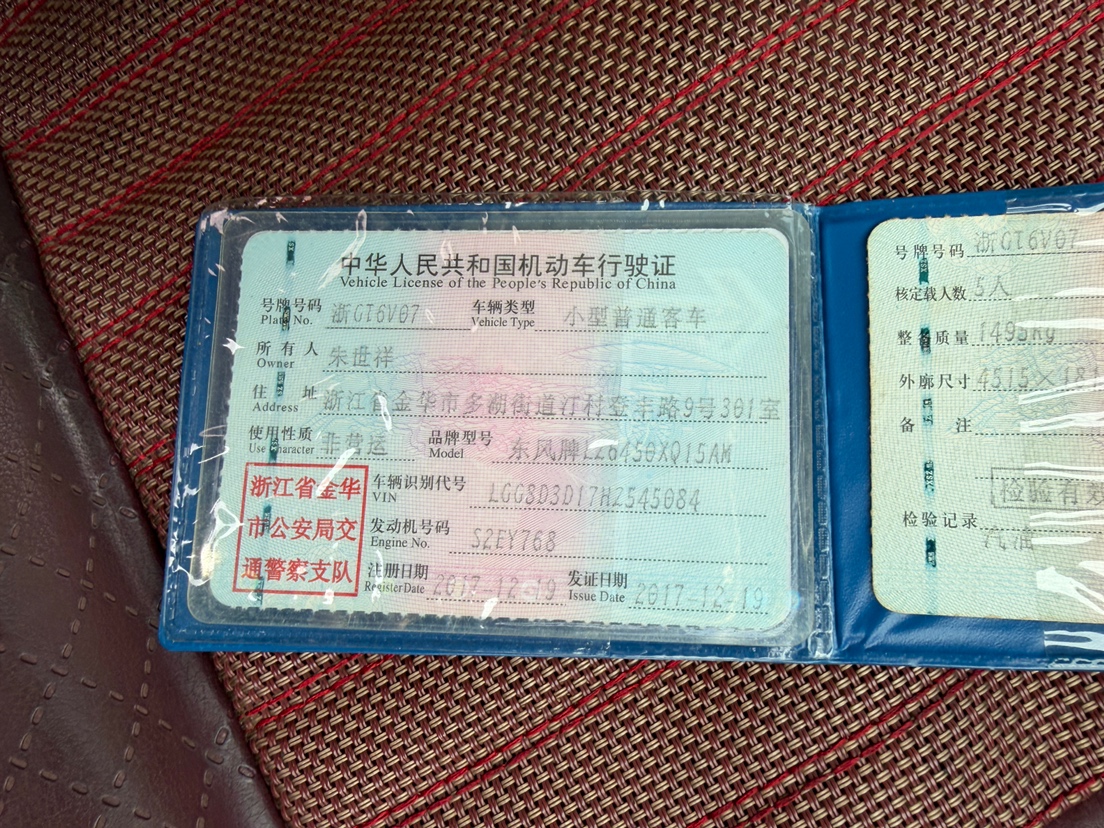 中华人民共和国机动车行驶证
Vehicle License of the People's Republic of China
号牌号码 浙GT6V07 车辆类型 小型普通客车
Plate No. Vehicle Type
所有人 朱世祥
Owner
住址 浙江省金华市多湖街道汀村登丰路9号301室
Address
使用性质 非营运 品牌型号 东风牌LZ6450XQ15AM
Use Character Model
车辆识别代号 LGG8D3D17HZ545084
VIN
发动机号码 S2EY768
Engine No.
注册日期 2017-12-19 发证日期 2017-12-19
Register Date Issue Date
浙江省金华
市公安局交
通警察支队
号牌号码 浙GT6V07
核定载人数 5人
整备质量 1495kg
外廓尺寸 4515×181
备注
检验有效
检验记录
汽油